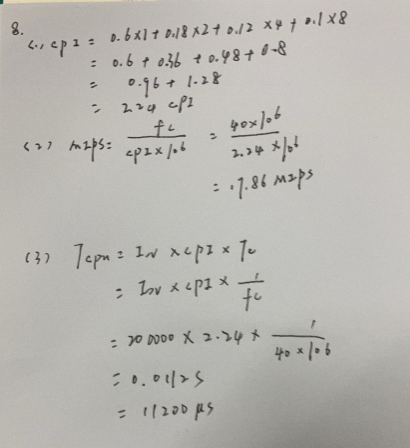 8.
(1) CPI = 0.6×1+0.18×2+0.12×4+0.1×8
= 0.6+0.36+0.48+0.8
= 0.96+1.28
= 2.24 CPI
(2) MIPS = fc / CPI×10^6 = 40×10^6 / 2.24×10^6
= 17.86 MIPS
(3) Tcpu = IN × CPI × Tc
= IN × CPI × 1/fc
= 200000 × 2.24 × 1 / 40×10^6
= 0.0112 S
= 11200 μs